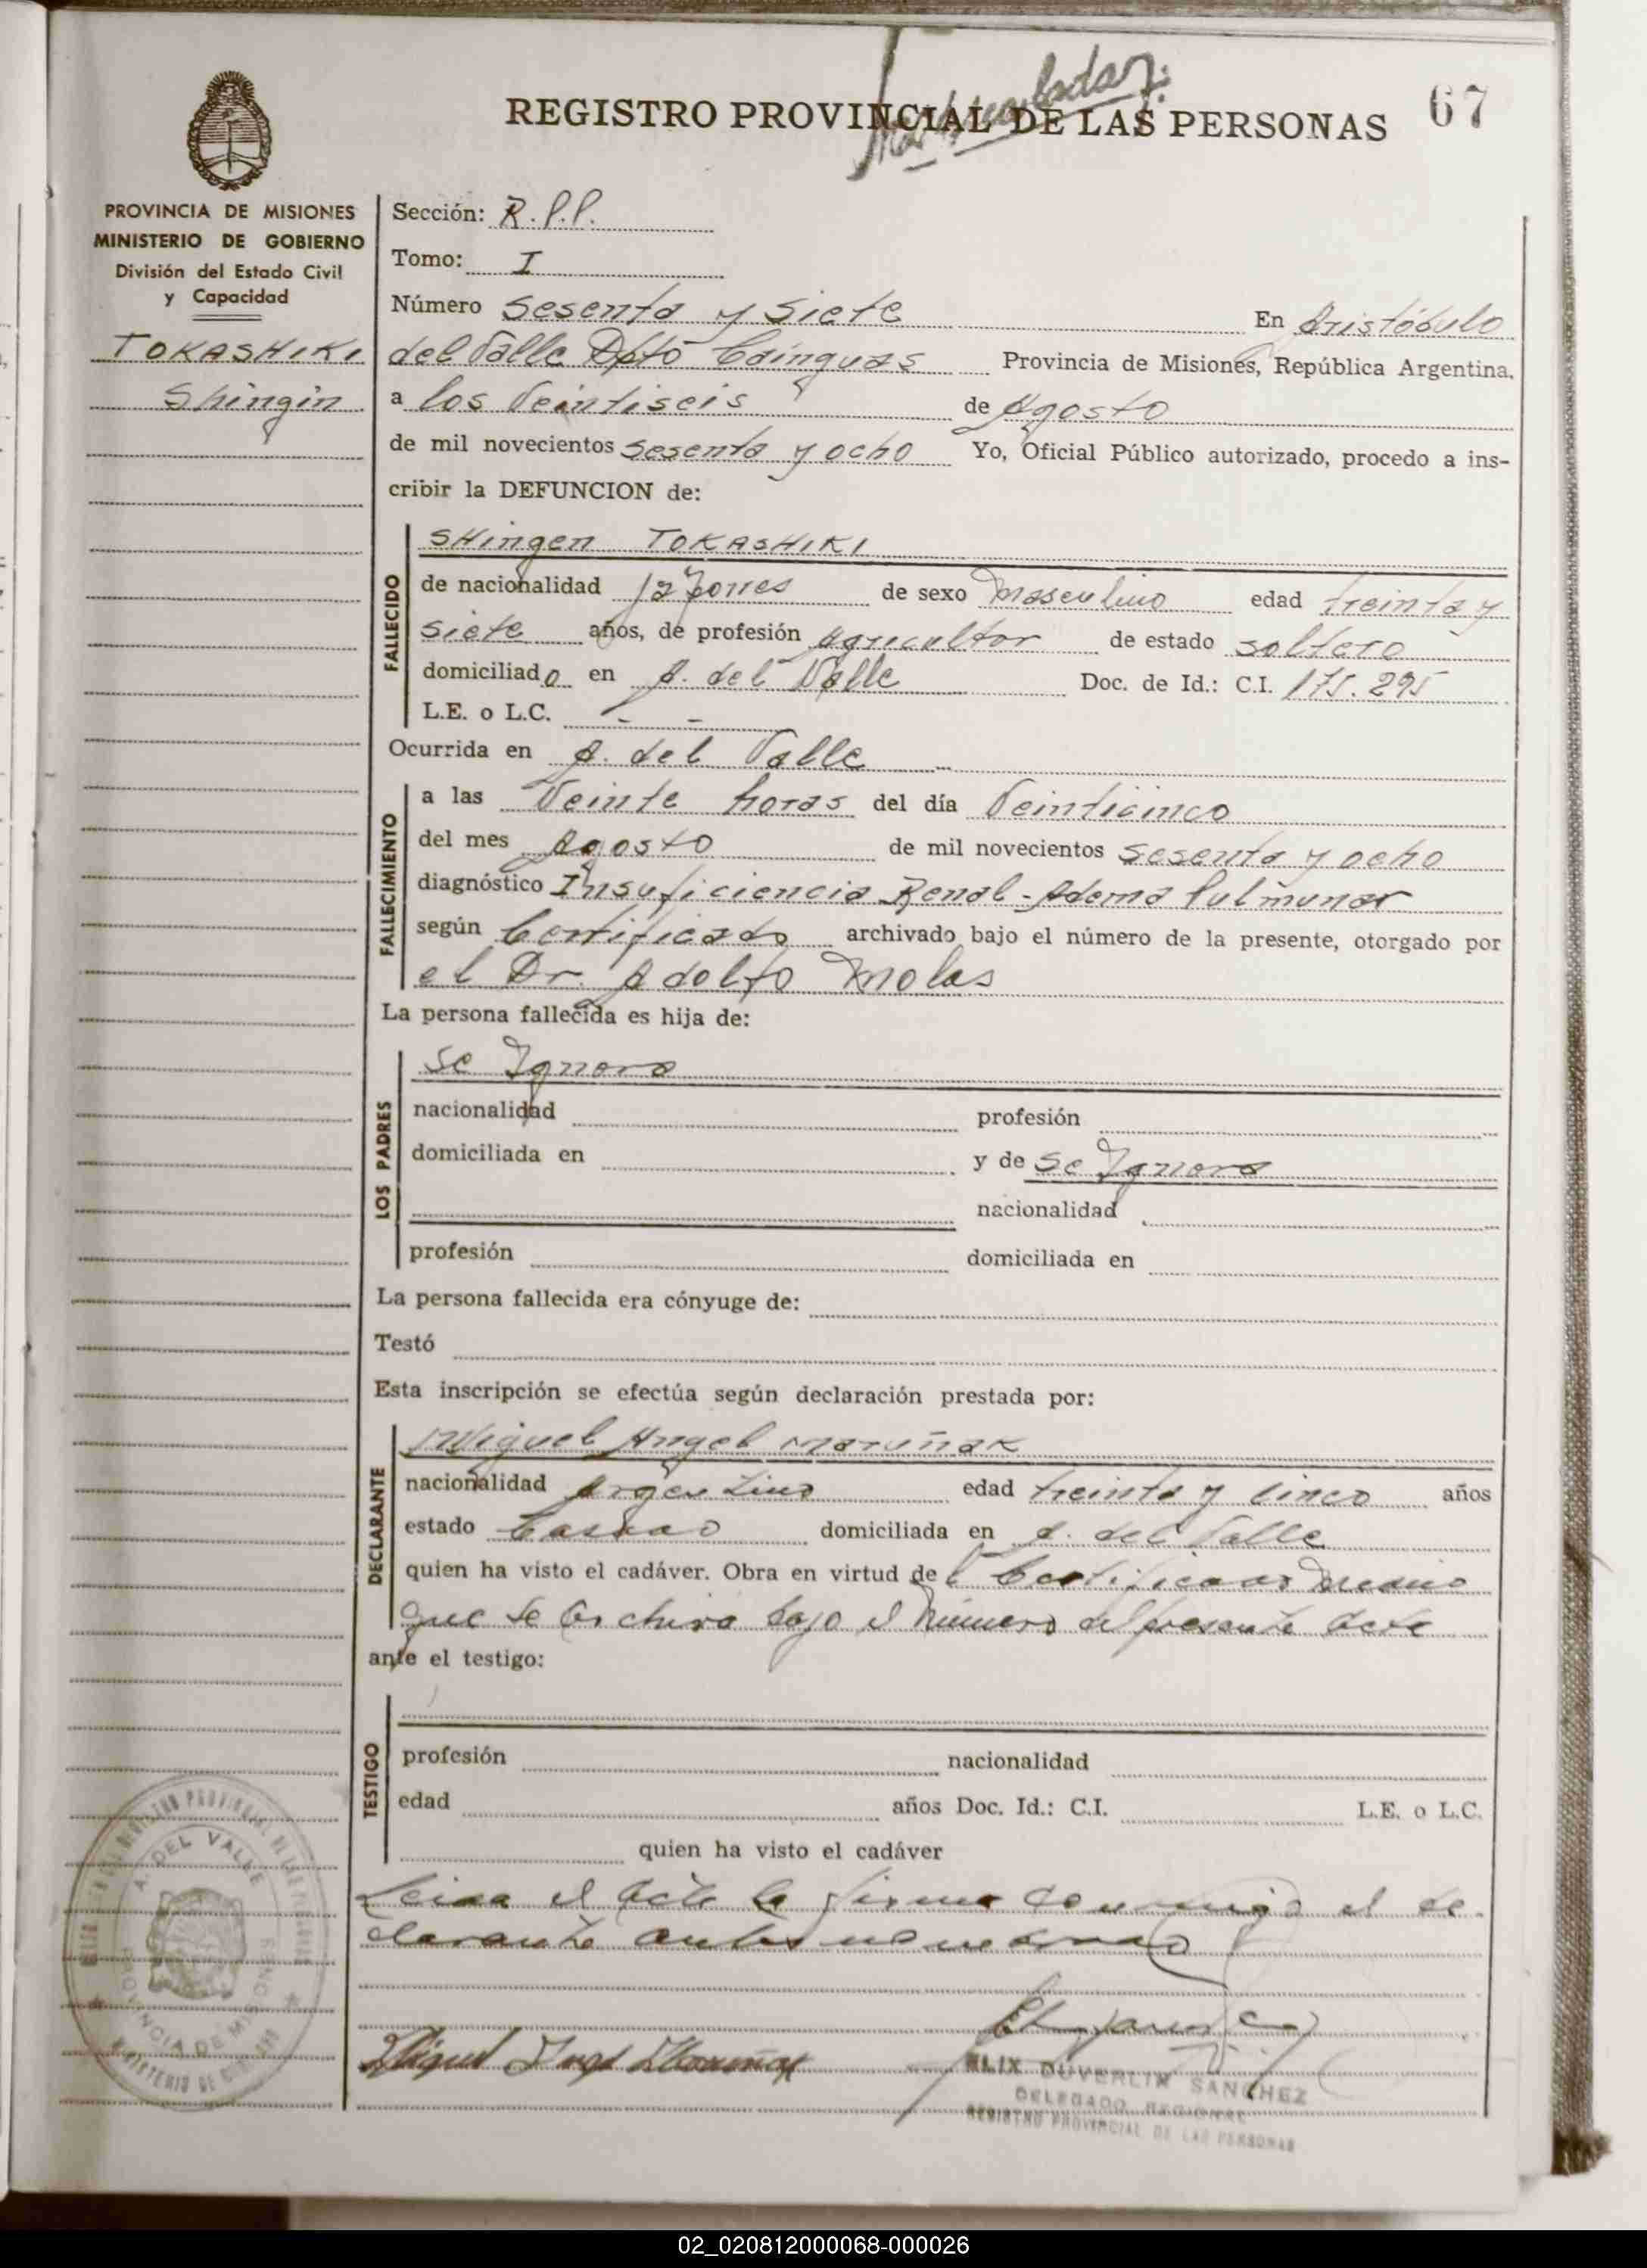 REGISTRO PROVINCIAL DE LAS PERSONAS
67
PROVINCIA DE MISIONES
MINISTERIO DE GOBIERNO
División del Estado Civil
y Capacidad
TOKASHIKI
Shingin
Sección: R.P.P.
Tomo: I
Número sesenta y siete En Aristóbulo
del Valle Dpto Cainguas Provincia de Misiones, República Argentina,
a los Veintiseis de Agosto
de mil novecientos sesenta y ocho Yo, Oficial Público autorizado, procedo a ins-
cribir la DEFUNCION de:
FALLECIDO
SHingen TOKASHIKI
de nacionalidad Japones de sexo Masculino edad treinta y
siete años, de profesión Agricultor de estado soltero
domiciliado en A. del Valle Doc. de Id.: C.I. 175.295
L.E. o L.C. - -
Ocurrida en A. del Valle
FALLECIMIENTO
a las Veinte horas del día Veinticinco
del mes Agosto de mil novecientos sesenta y ocho
diagnóstico Insuficiencia Renal - Adema Pulmunar
según Certificado archivado bajo el número de la presente, otorgado por
el Dr. Adolfo Molas
La persona fallecida es hija de:
LOS PADRES
Se Ignora
nacionalidad profesión
domiciliada en y de Se Ignora
nacionalidad
profesión domiciliada en
La persona fallecida era cónyuge de:
Testó
Esta inscripción se efectúa según declaración prestada por:
DECLARANTE
Miguel Angel Maruñak
nacionalidad Argentino edad treinta y cinco años
estado Casado domiciliada en A. del Valle
quien ha visto el cadáver. Obra en virtud del Certificado Medico
que se archiva bajo el número del presente acta
ante el testigo:
TESTIGO
profesión nacionalidad
edad años Doc. Id.: C.I. L.E. o L.C.
quien ha visto el cadáver
Leida el acta la firma conmigo el de-
clarante antes nombrado
Miguel Angel Maruñak
DUVERLIN SANCHEZ
DELEGADO REGIONAL
REGISTRO PROVINCIAL DE LAS PERSONAS
A. DEL VALLE
PROVINCIA DE MISIONES
02_020812000068-000026